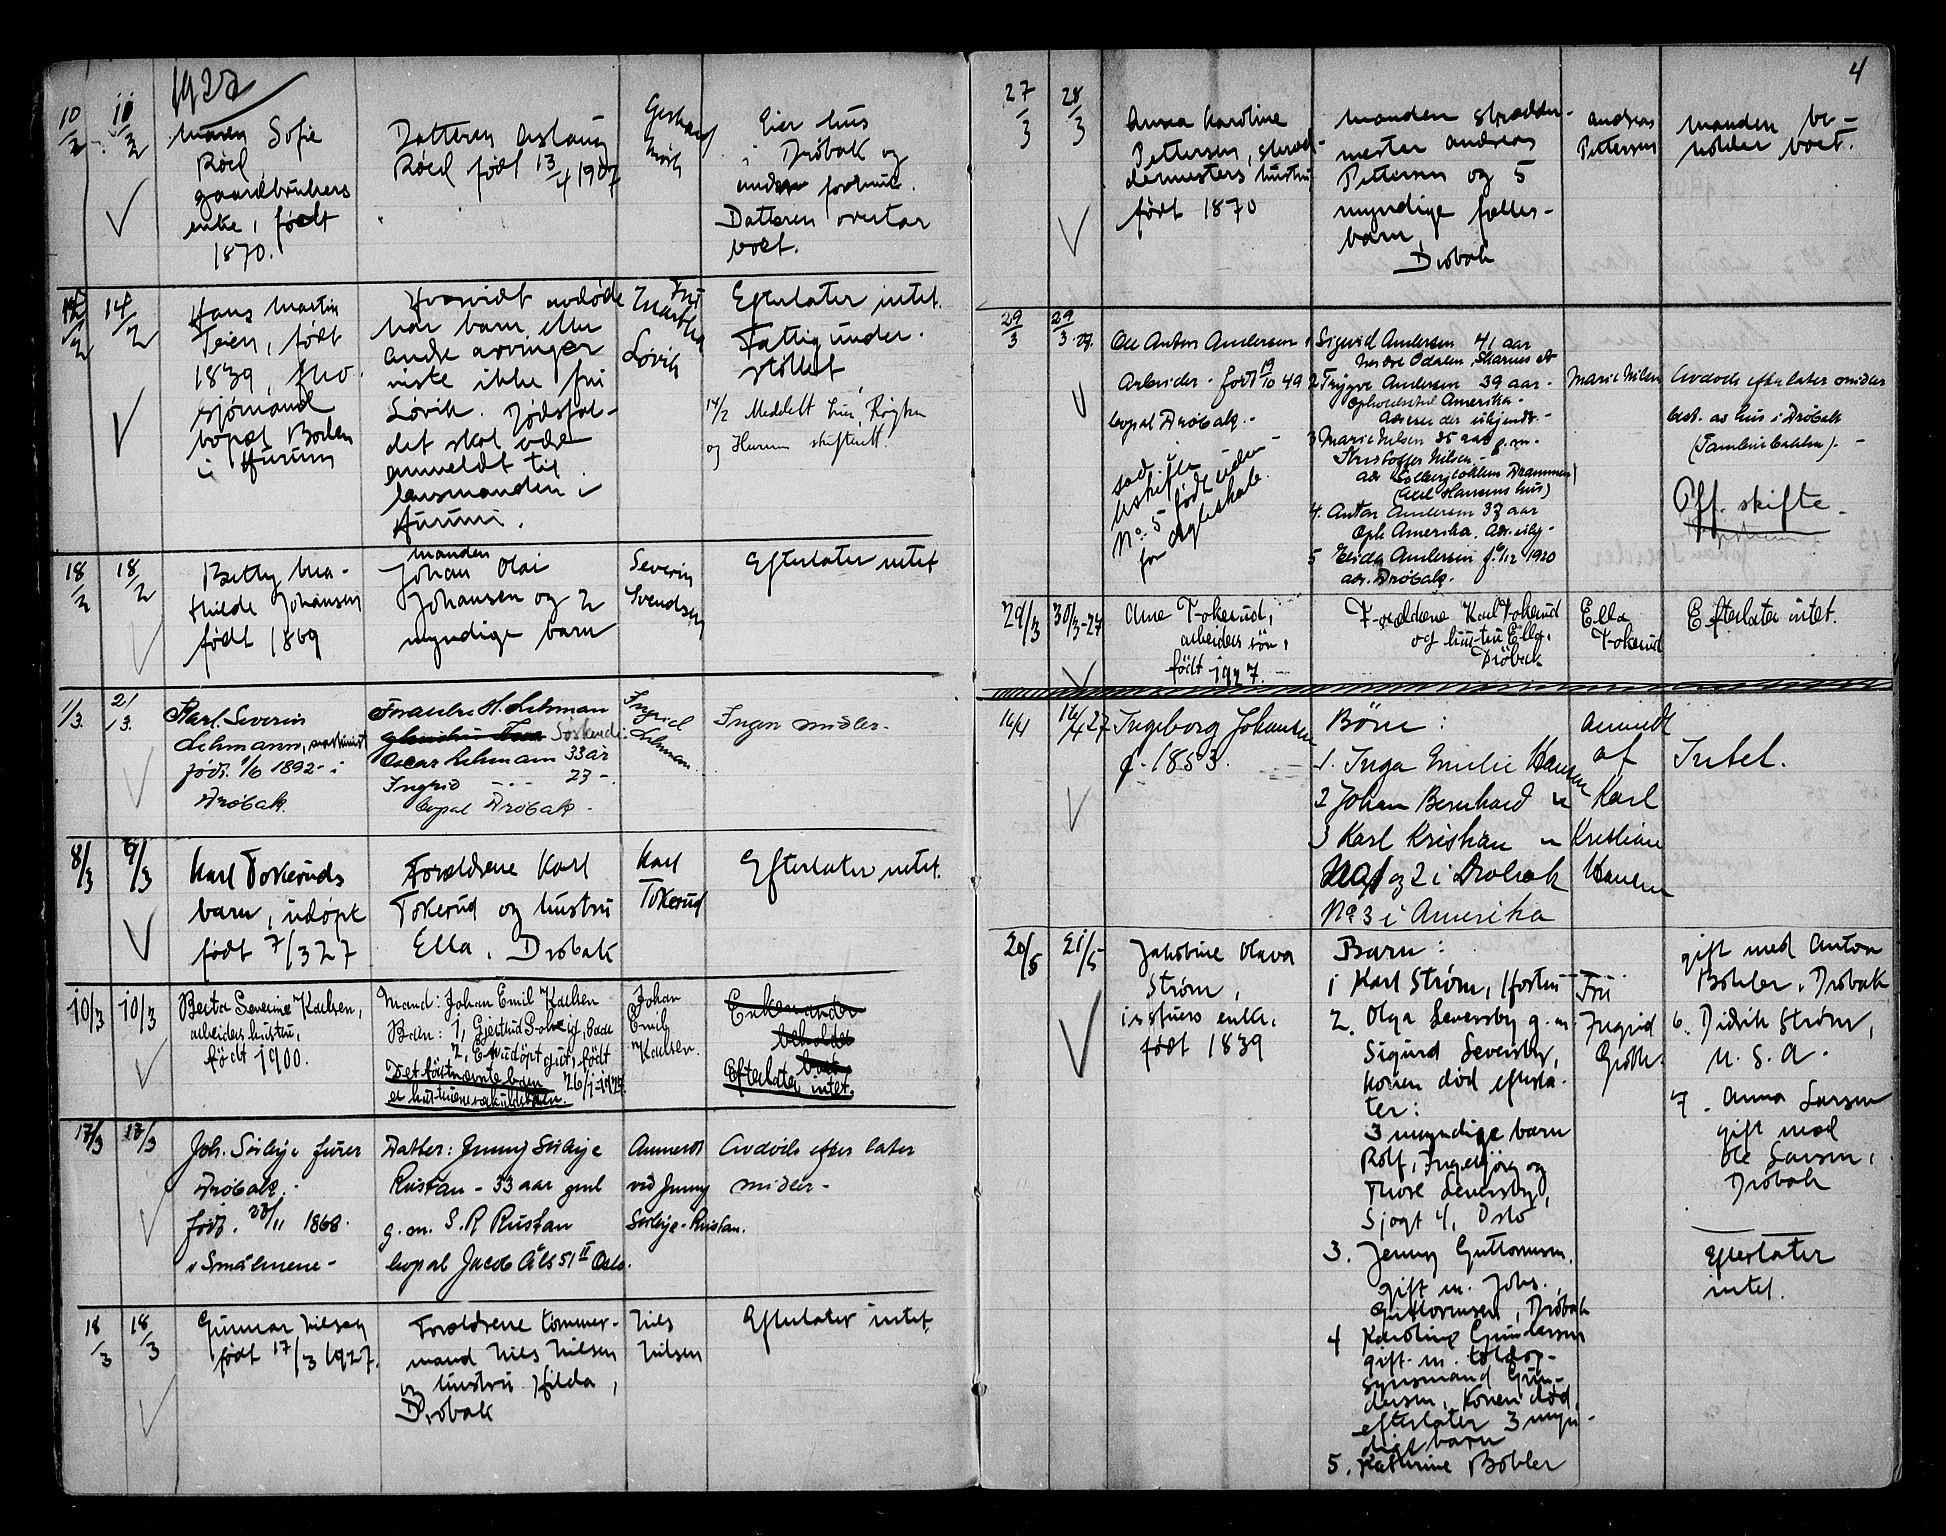 1927
10/2 11/2
Maren Sofie
Røed
gaardbrukers
enke, født
1870.
Datteren Aslaug
Røed født 13/4 1907
Eier hus
i Drøbak og
indbo forøvrig.
Datteren overtar
boet.
12/2 14/2
Hans Martin
Teien, født
1839, fhv.
sjømand
bopæl Boden
i Hurum
Hvorvidt avdøde
har barn eller
andre arvinger
viste ikke fru
Løvik. Dødsfal-
det skal være
anmeldt til
lensmanden i
Hurum.
Fru
Martha
Løvik
Efterlater intet.
Fattigunder-
støttet
14/2 Meddelt hr. Røyken
og Hurum skifterett.
18/2 18/2
Betty Ma-
thilde Johansen
født 1869
Manden
Johan Olai
Johansen og 2
myndige barn
Severin
Svendsen
Efterlater intet
1/3. 2/3.
Karl Severin
Lehmann, maskinist
født. 1/6 1892 - i
Drøbak.
Forældre H. Lehman
Søskende:
Oscar Lehmann 33 år
Ingrid - - - 23 -
bopæl Drøbak -
Ingrid
Lehman.
Ingen midler -
8/3 9/3
Karl Tokeruds
barn, udøpt
født 7/3 27
Forældrene Karl
Tokerud og hustru
Ella, Drøbak
Karl
Tokerud
Efterlater intet.
10/3 10/3
Berta Severine Karlsen,
arbeiders hustru,
født 1900.
Mand: Johan Emil Karlsen
Barn: 1,
2, Et udøpt gut, født
26/1-1927.
Det førstnævnte barn
er hustruens
Johan
Emil
Karlsen.
Enkemanden
beholder
boet.
Efterlater intet.
17/3 17/3
Joh. Sørlije furer
Drøbak.
født. 23/11 1868.
i Smålenene -
Datter: Jenny Sørlije
Rustan - 33 aar gml
g. m. S. R Rustan
bopæl Jacob Åls 51 II Oslo.
Anmeldt
ved Jenny
Sørlije-Rustan.
Avdøde efterlater
midler -
18/3 18/3
Gunnar Nilsen
født 17/3 1927.
Forældrene tømmer-
mand Nils Nilsen
og hustru Hilda,
Drøbak
Nils
Nilsen
Efterlater intet.
4
27/3 28/3
Anna Karoline
Pettersen, skræd-
dermesters hustru
født 1870
Manden skrædder-
mester Andreas
Pettersen og 5
myndige fælles-
barn,
Drøbak
Andreas
Pettersen
Manden be-
holder boet.
29/3 29/3.27.
Ole Anton Andersen
Arbeider - født 19/10 49
bopæl Drøbak. -
No. 5 født uden
for egteskab.
1 Sigvid Andersen 41 aar
Nordre Odalen, Skarnes st
2 Trygve Andersen 39 aar -
opholdssted Amerika -
Adresse der ukjendt -
3 Marie Nilsen 35 aar g.m.
Kristoffer Nilsen -
adr Solbergbakken Drammen
(Carl Hansens hus)
4. Anton Andersen 33 aar
Oph. Amerika. Adr. ukj -
5 Elida Andersen f. 6/12 1920
adr. Drøbak.
Marie Nilsen
Avdøde efterlater midler
best. av hus i Drøbak
(Tamburbakken). -
Off. skifte.
29/3 30/3-27
Arne Tokerud,
arbeiders søn,
født 1927.
Forældrene Karl Tokerud
og hustru Ella,
Drøbak
Ella
Tokerud
Efterlater intet.
16/4 16/4 27
Ingeborg Johansen
f. 1853.
Børn:
1. Inga Emilie Hansen
2 Johan Bernhard "
3 Karl Kristian "
No 1 og 2 i Drøbak
No 3 i Amerika
Anmeldt
af
Karl
Kristian
Hansen
Intet.
20/5 21/5
Jakobine Olava
Strøm,
født 1839
Barn:
1 Karl Strøm,
2. Olga Seversby g. m.
Sigurd Seversby,
konen død efterla-
ter:
3 myndige barn
Rolf, Ingebjørg og
Thore Seversby,
4, Oslo
3. Jenny Guttormsen.
gift m. Johs.
Guttormsen, Drøbak
4 Karoline Gundersen
gift m. toldop-
synsmand Gun-
dersen, konen død,
efterlater 3 myn-
dige barn
5. Kathrine Bøhler
Fru
Ingrid
Groth
gift med Anton
Bøhler, Drøbak
6. Didrik Strøm,
U. S. A.
7. Anna Larsen
gift med
Ole Larsen,
Drøbak
Efterlater
intet.